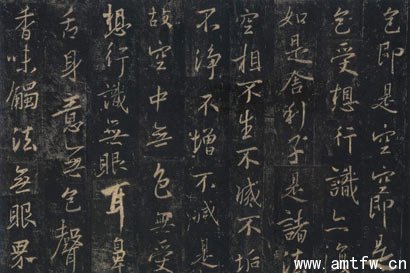 色即是空空即是
色受想行識亦復
如是舍利子是諸法
空相不生不滅不垢
不淨不增不減是
故空中無色無受
想行識無眼耳鼻
舌身意無色聲
香味觸法無眼界
www.amtfw.cn